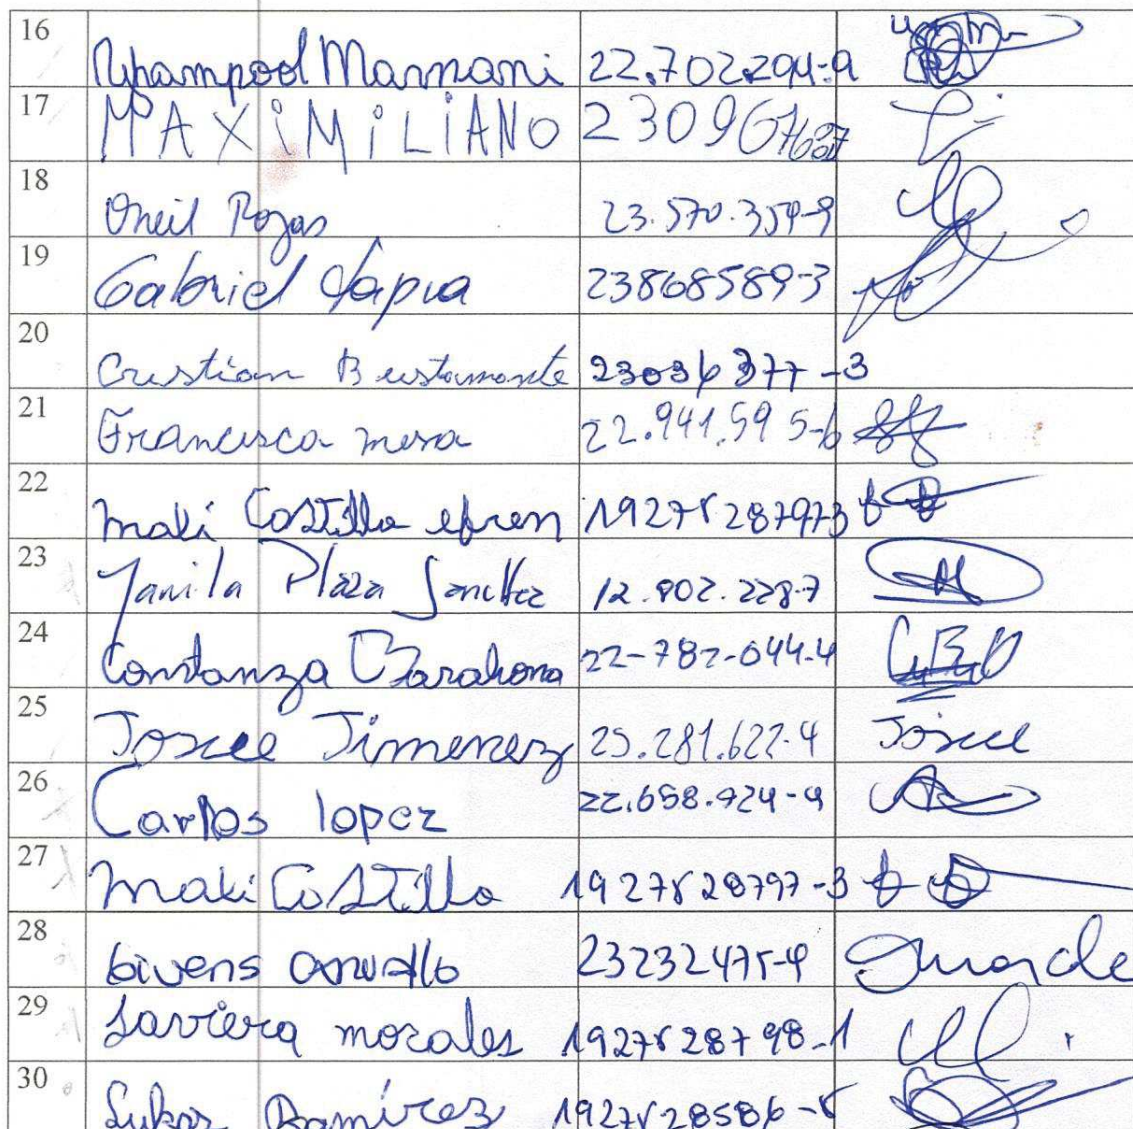 16 Mamani 22.702.294-9
17 MAXiMiLiANO 230967
18 Oneil Rojas 23.570.359-9
19 Gabriel Tapia 238685589-3
20 Cristian Bustamante 23036377-3
21 Francisca mesa 22.941.595-6
22 maki Costillo efren 19275287973
23 Yamila Plaza Sanchez 12.802.228-7
24 Constanza Barahona 22-782-044-4
25 Josue Jimenez 25.281.622-4 Josue
26 Carlos lopez 22.658.924-9
27 maki Costillo 1927528797-3
28 Givens 23232475-4
29 Javiera morales 1927528798-1
30 Ramirez 1927528586-5